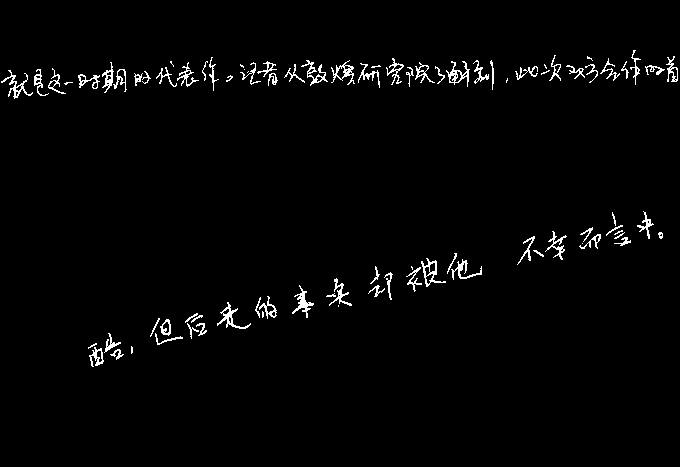 就是这一时期的代表作。记者从敦煌研究院了解到，此次双方合作的首
酷，但后来的事实却被他不幸而言中。